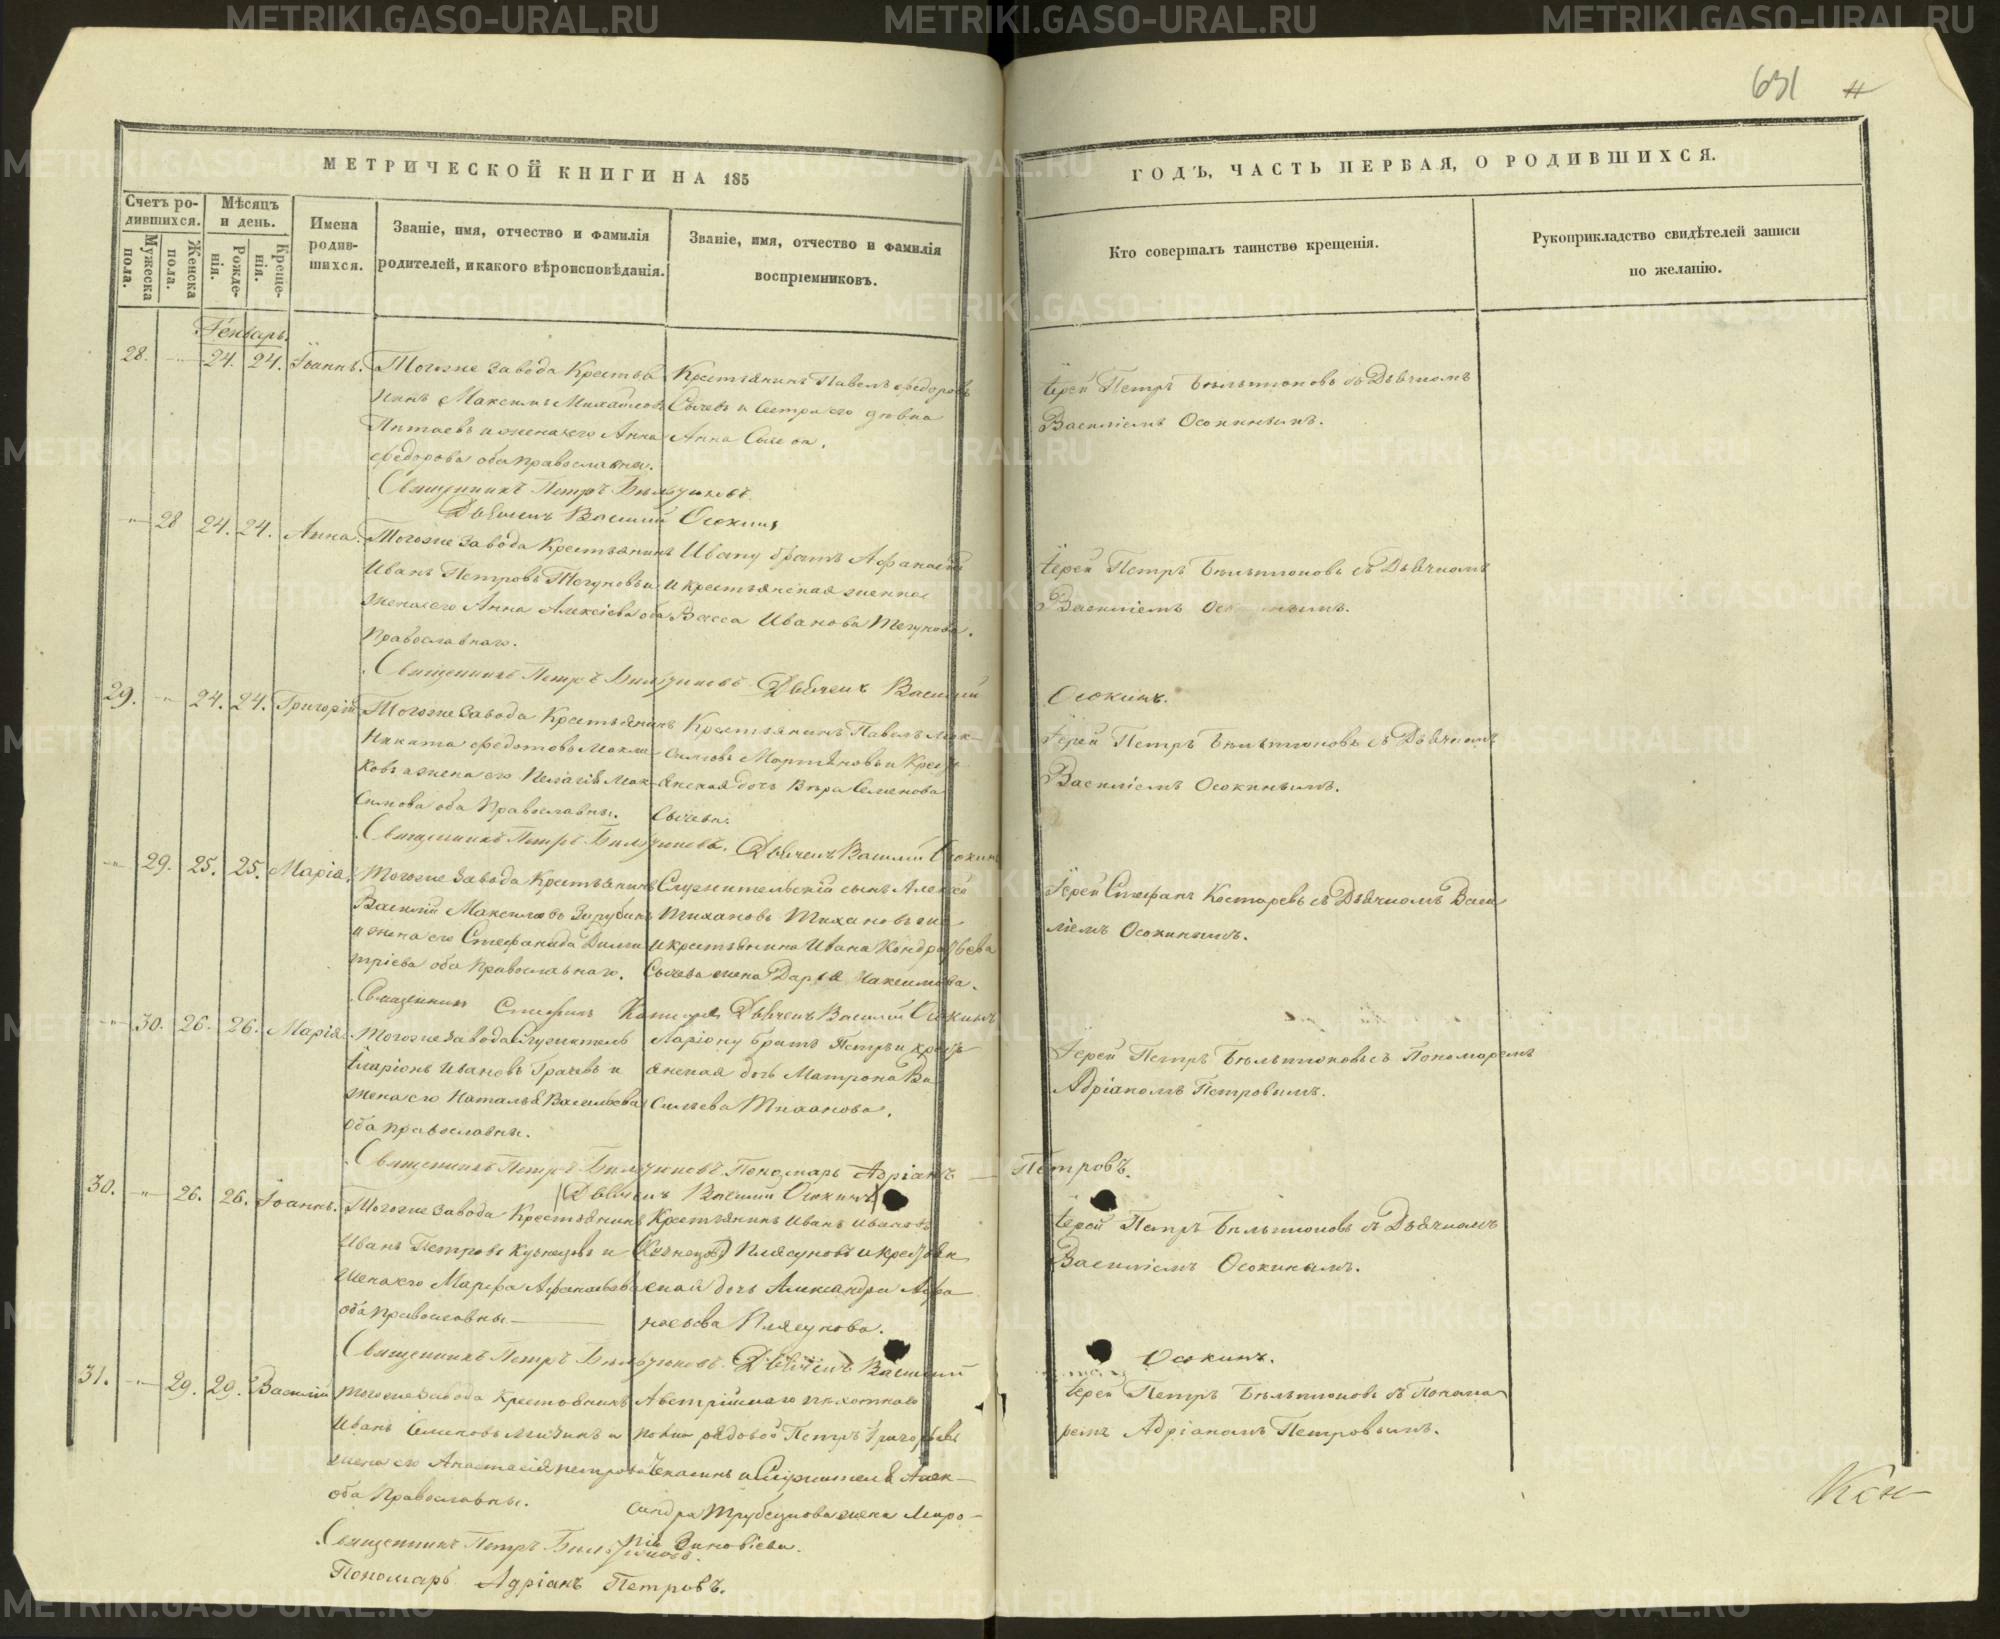 631
МЕТРИЧЕСКОЙ КНИГИ НА 185
ГОДЪ, ЧАСТЬ ПЕРВАЯ, О РОДИВШИХСЯ.
Счетъ ро-
дившихся.
Мужеска пола.
Женска пола.
Мѣсяцъ
и день.
Рожде-
нія.
Креще-
нія.
Имена
родив-
шихся.
Званіе, имя, отчество и фамилія
родителей, и какого вѣроисповѣданія.
Званіе, имя, отчество и фамилія
воспріемниковъ.
Кто совершалъ таинство крещенія.
Рукоприкладство свидѣтелей записи
по желанію.
Генварь.
28. 24. 24. Іоаннъ.
Тогоже завода Крестья
нинъ Максимъ Михайловъ
и жена его Анна
Федорова оба православны.
Крестьянинъ Павелъ Федоровъ
Сычевъ и сестра его дѣвка
Анна Сычева.
Іерей Петръ Бѣльтюковъ съ Дьячкомъ
Василіемъ Осокинымъ.
Священникъ Петръ Бѣльтюковъ.
Дьячекъ Василій Осокинъ
28 24. 24. Анна.
Тогоже завода Крестьянинъ
Иванъ Петровъ Тегуновъ и
жена его Анна Алексіева оба
Православнаго.
Ивану братъ Афанасій
и крестьянская женка
Васса Иванова Тегунова.
Іерей Петръ Бѣльтюковъ съ Дьячкомъ
Василіемъ
Священникъ Петръ Бѣльтюковъ. Дьячекъ Василій
Осокинъ.
29. 24. 24. Григорій
Тогоже завода Крестьянинъ
Никита Федотовъ
и жена его Пелагія Мак-
симова оба Православны.
Крестьянинъ Павелъ Мак-
симовъ Мартьяновъ и Крест
янская дочь Вѣра Семенова
Сычева.
Іерей Петръ Бѣльтюковъ съ Дьячкомъ
Василіемъ Осокинымъ.
Священникъ Петръ Бѣльтюковъ. Дьячекъ Василій Осокинъ
29. 25. 25. Марія.
Тогоже завода Крестьянинъ
Василій Максимовъ Зарубинъ
и жена его Стефанида Дими
тріева оба Православнаго.
Служительскій сынъ Алексѣй
Тихановъ
и крестьянина Ивана Кондратьева
Сычева жена Дарья Максимова.
Іерей Стефанъ Костаревъ съ Дьячкомъ Васи
ліемъ Осокинымъ.
Священникъ Стефанъ Костаревъ Дьячекъ Василій Осокинъ
30. 26. 26. Марія.
Тогоже завода Служитель
Иларіонъ Ивановъ Грачевъ и
жена его Наталья Васильева
оба православны.
Ларіону братъ Петръ и крест
янская дочь Матрона Ва
сильева
Іерей Петръ Бѣльтюковъ съ Пономаремъ
Адріаномъ Петровымъ.
Священникъ Петръ Бѣльтюковъ. Пономарь Адріанъ
Петровъ.
(Дьячекъ Василій Осокинъ)
30. 26. 26. Іоаннъ.
Тогоже завода Крестьянинъ
Иванъ Петровъ Кузнецовъ и
жена его Марфа Афанасьева
оба православны
Крестьянинъ Иванъ Ивановъ
(Кузнецов) Плясуновъ и крестьян
ская дочь Александра Афа
насьева Плясунова.
Іерей Петръ Бѣльтюковъ съ Дьячкомъ
Василіемъ Осокинымъ.
Священникъ Петръ Бѣльтюковъ. Дьячекъ Василій
Осокинъ.
31. 29. 29. Василій
Тогоже завода Крестьянинъ
Иванъ и
жена его Анастасія Петрова
оба Православны.
Австрійскаго пѣхотнаго
полка рядовой Петръ Григорьевъ
и Служителя Алек-
сандра Трубецкова жена Мавро-
Зиновіева.
Іерей Петръ Бѣльтюковъ съ Понома
ремъ Адріаномъ Петровымъ.
Священникъ Петръ Бѣльтюковъ.
Пономарь Адріанъ Петровъ.
METRIKI.GASO-URAL.RU